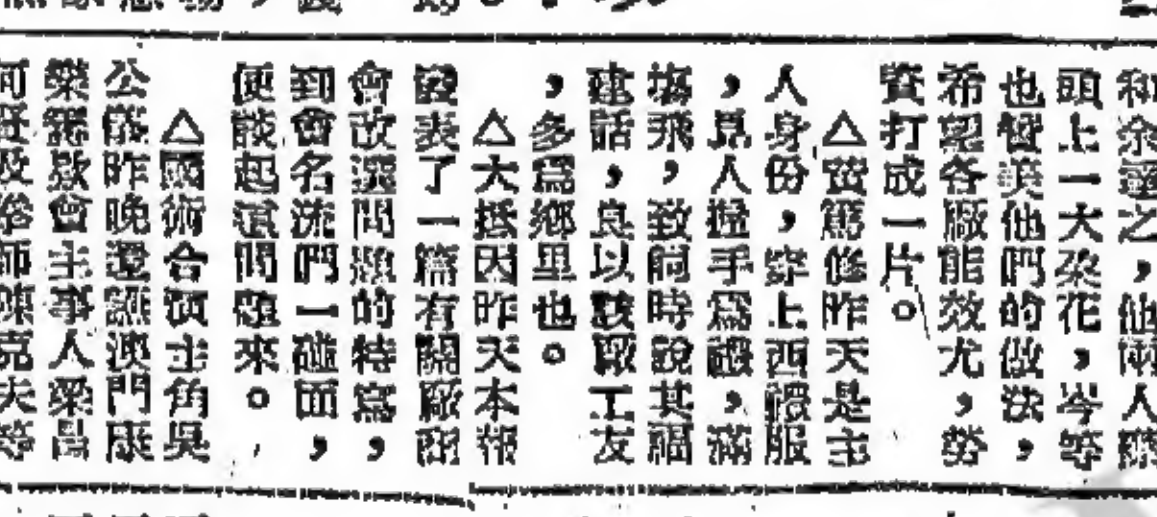 和余靈之，他兩人襟
頭上一大朶花，岑等
也暫美他們的做法，
希望各廠能效尤，勞
資打成一片。
△黃篤修昨天是主
人身份，穿上西禮服
，見人握手爲禮，滿
塲飛，致詞時說其福
建話，良以該廠工友
，多爲鄉里也。
△大抵因昨天本報
發表了一篇有關廠商
會改選問題的特寫，
到會名流們一碰面，
便談起這問題來。
△國術合演主角吳
公儀昨晚還讌澳門康
樂籌款會主事人梁昌
何賢及裕師陳克夫等